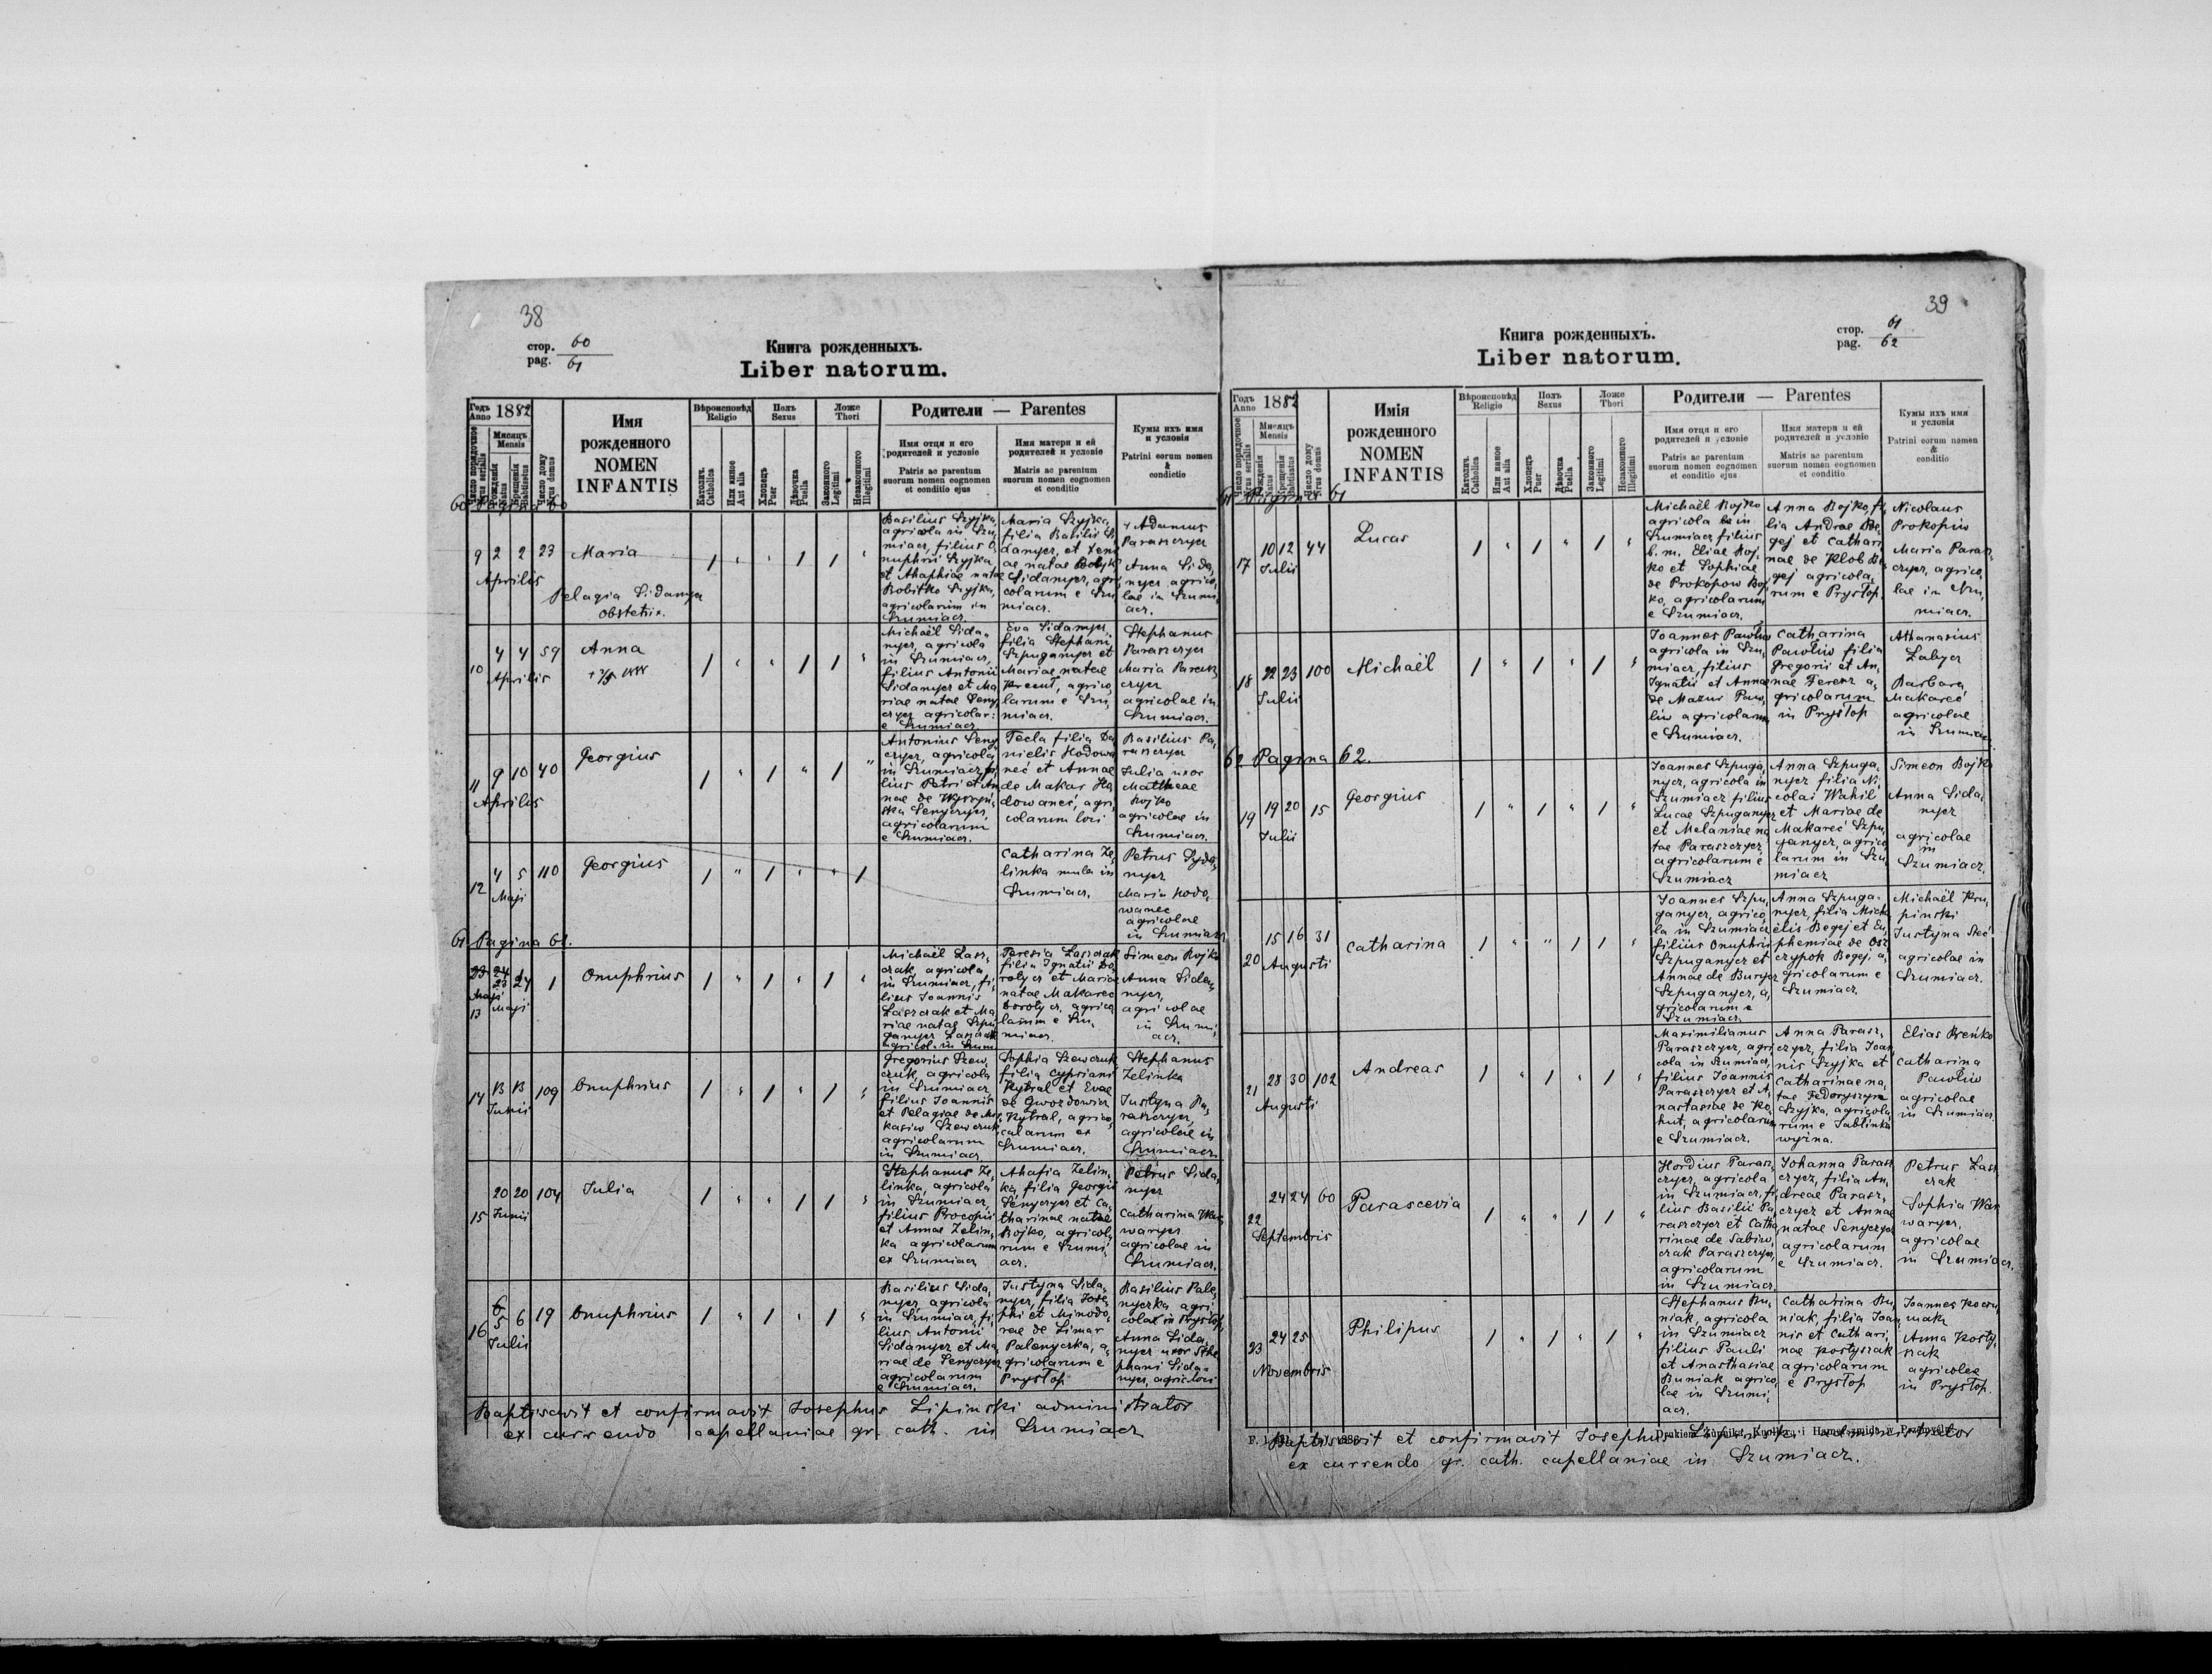 38
стор. 60
pag. 61
Книга рожденныхъ.
Liber natorum.
Годъ Anno 1882
Число порядочное Nrus serialis
Мисяць Mensis
Рожденія Natus
Крещенія Babtisatus
Число дому Nrus domus
Имя рожденного
NOMEN INFANTIS
Вѣроисповѣд Religio
Католич. Catholica
Или инное Aut alia
Полъ Sexus
Хлопецъ Puer
Дѣвочка Puella
Ложе Thori
Законного Legitimi
Незаконного Illegitimi
Родители — Parentes
Имя отця и его родителей и условіе
Patris ac parentum suorum nomen cognomen et conditio ejus
Имя матери и ей родителей и условіе
Matris ac parentum suorum nomen cognomen et conditio
Кумы ихъ имя и условія
Patrini eorum nomen & condictio
60 Pagina 60
9
2 2 23
Aprilis
Maria
Pelagia Sidanyer
obstetrix.
Basilius Szyjka,
agricola in Szu,
miacz, filius O,
nuphrii Szyjka,
et Ahaphiae natae
Bobitko Szyjka,
agricolarum in
Szumiacz.
Maria Szyjka,
filia Basilii Si,
danycz, et Xeni
ae natae Bobyk
Sidanycz, agri,
colarum e Szu
miacz.
Adamus
Paraszczycz
Anna Sida,
nycz agrico,
lae in Szumi,
acz.
10
4 4 59
Aprilis
Anna
Michaël Sida,
nycz, agricola
in Szumiacz,
filius Antonii
Sidanycz et Ma
riae natae Seny,
czycz agricolar:
e Szumiacz
Eva Sidanycz
filia Stephani
Szpuganycz et
Mariae natae
agrico,
larum e Szu,
miacz.
Stephanus
Paraszczycz
Maria Parasz
czycz
agricolae in
Szumiacz.
11
9 10 40
Aprilis
Georgius
Antonius Seny
czycz, agricola
in Szumiacz, fi
lius Petri et An
nae de
Senyczycz,
agricolarum
e Szumiacz.
Tecla filia Da
nielis Hodowa
neć et Annae
de Makar Ho
dowaneć, agri,
colarum loci
Basilius Pa,
raszczycz
Julia uxor
Mattheae
Bojko
agricolae in
Szumiacz.
12
4 5 110
Maji
Georgius
Catharina Ze,
linka in
Szumiacz.
Petrus Syda,
nycz
Maria Hodo,
wanec
agricolae
in Szumiacz
61 Pagina 61.
13
24 1
Maji
Onuphrius
Michaël Łasz,
czak, agricola
in Szumiacz, fi,
lius Joannis
Łaszczak et Ma
riae natae Szpu
ganycz Łaszczak
agricol. in Szum
Teresia Łaszczak
filia Ignatii Do
rotycz et Mariae
natae Makarec
Dorotycz, agrico
larum e Szu,
miacz.
Simeon Bojko
Anna Sida,
nycz,
agricolae
in Szumi,
acz.
14
13 13 109
Junii
Onuphrius
Gregorius Szew,
czuk, agricola
in Szumiacz,
filius Joannis
et Pelagiae de
Szewczuk
agricolarum
in Szumiacz
Sophia Szewczuk
filia Cypriani
Kybral et Evae
de Gwozdowicz
Kybral, agrico,
larum ex
Szumiacz.
Stephanus
Zelinka
Justyna Pa,
raszczycz
agricolae in
Szumiacz.
15
20 20 104
Junii
Julia
Stephanus Ze,
linka, agricola
in Szumiacz,
filius Procopii
et Annae Zelin,
ka agricolarum
ex Szumiacz
Ahafia Zelin,
ka, filia Georgii
Senyczycz et Ca,
tharinae natae
Bojko, agricol,
rum e Szumi,
acz.
Petrus Sida,
nycz
Catharina War
warycz
agricolae in
Szumiacz.
16
5 6 19
Julii
Onuphrius
Basilius Sida,
nycz, agricola
in Szumiacz, fi,
lius Antonii
Sidanycz et Ma
riae de Senyczycz
agricolarum
e Szumiacz.
Justyna Sida,
nycz, filia Jose,
phi et Minodo,
rae de Limar
Palenyczka, a,
gricolarum e
Prystop
Basilius Pale,
nyczka agri
colae in Prystop,
Anna Sida,
nycz uxor Ste
phani Sida,
nycz, agric loci
Baptisavit et confirmavit Josephus Lipinski administrator
ex currendo capellaniae gr. cath. in Szumiacz
39
стор. 61
pag. 62
Книга рожденныхъ.
Liber natorum.
Годъ Anno 1882
Число порядочное Nrus serialis
Мисяць Mensis
Рожденія Natus
Крещенія Babtisatus
Число дому Nrus domus
Имія рожденного
NOMEN INFANTIS
Вѣроисповѣд Religio
Католич. Catholica
Или инное Aut alia
Полъ Sexus
Хлопецъ Puer
Дѣвочка Puella
Ложе Thori
Законного Legitimi
Незаконного Illegitimi
Родители — Parentes
Имя отця и его родителей и условіе
Patris ac parentum suorum nomen cognomen et conditio ejus
Имя матери и ей родителей и условіе
Matris ac parentum suorum nomen cognomen et conditio
Кумы ихъ имя и условія
Patrini eorum nomen & conditio
61 Pagina 61
17
10 12 44
Julii
Lucas
Michaël Bojko
agricola in
Szumiacz filius
b. m. Eliae Boj,
ko et Sophiae
de Prokopow Boj
ko, agricolarum
e Szumiacz.
Anna Bojko, fi,
lia Andrae Be,
gej et Cathari
nae de Kłob Be,
gej agricola,
rum e Prystop.
Nicolaus
Prokopiw
Maria Parasz,
czycz, agrico,
lae in Szu,
miacz.
18
22 23 100
Julii
Michaël
Joannes Pawliw
agricola in Szu,
miacz, filius
Ignatii et Annae
de Mazur Paw,
liw agricolarum
e Szumiacz.
Catharina
Pawliw filia
Gregorii et An,
nae Ferenz a,
gricolarum
in Prystop
Athanasius
Łabycz
Barbara
Makareć
agricolae
in Szumiacz
62 Pagina 62.
19
19 20 15
Julii
Georgius
Joannes Szpuga,
nycz, agricola in
Szumiacz filius
Lucae Szpuganycz
et Melaniae na
tae Paraszczycz,
agricolarum e
Szumiacz
Anna Szpuga,
nycz filia Ni,
colai Wahil
et Mariae de
Makareć Szpu,
ganycz, agrico
larum in Szu,
miacz
Simeon Bojko
Anna Sida,
nycz
agricolae
in
Szumiacz.
20
15 16 31
Augusti
Catharina
Joannes Szpu,
ganycz, agrico,
la in Szumiacz
filius Onuphrii
Szpuganycz et
Annae de Burycz
Szpuganycz, a,
gricolarum e
Szumiacz
Anna Szpuga-
nycz, filia Micha
elis Begej et Eu,
phemiae de Osz
czypok Begej, a,
gricolarum e
Szumiacz.
Michaël Kru,
pinski
Justyna Steć
agricolae in
Szumiacz.
21
28 30 102
Augusti
Andreas
Maximilianus
Paraszczycz, agri
cola in Szumiacz,
filius Joannis
Paraszczycz et A,
nastasiae de Ko,
hut, agricolarum
e Szumiacz.
Anna Parasz,
czycz, filia Joan
nis Szyjka et
Catharinae na,
tae Fedoryszyn
Szyjka, agricola,
rum e Jablinka
wyżna.
Elias Breńko
Catharina
Pawliw
agricolae
in Szumiacz
22
24 24 60
Septembris
Parascevia
Hordius Parasz,
czycz, agricola
in Szumiacz, fi,
lius Basilii Pa,
raszczycz et Catha
rinae de Sabiw,
czak Paraszczycz,
agricolarum
in Szumiacz.
Johanna Parasz
czycz, filia An,
dreae Parasz,
czycz et Annae
natae Senyczycz
agricolarum
e Szumiacz.
Petrus Łasz
czak
Sophia War
warycz,
agricolae
in Szumiacz.
23
24 25
Novembris
Philipus
Stephanus Bu,
niak, agricola
in Szumiacz
filius Pauli
et Anasthasiae
Buniak agrico,
lae in Szumi,
acz.
Catharina Bu,
niak, filia Joan,
nis et Cathari,
nae Kostyszak
agricolarum
e Prystop
Joannes Koczu,
mak
Anna Kosty,
szak
agricolae
in Prystop.
Baptisavit et confirmavit Josephus Lipinski administrator
ex currendo gr. cath. capellaniae in Szumiacz.